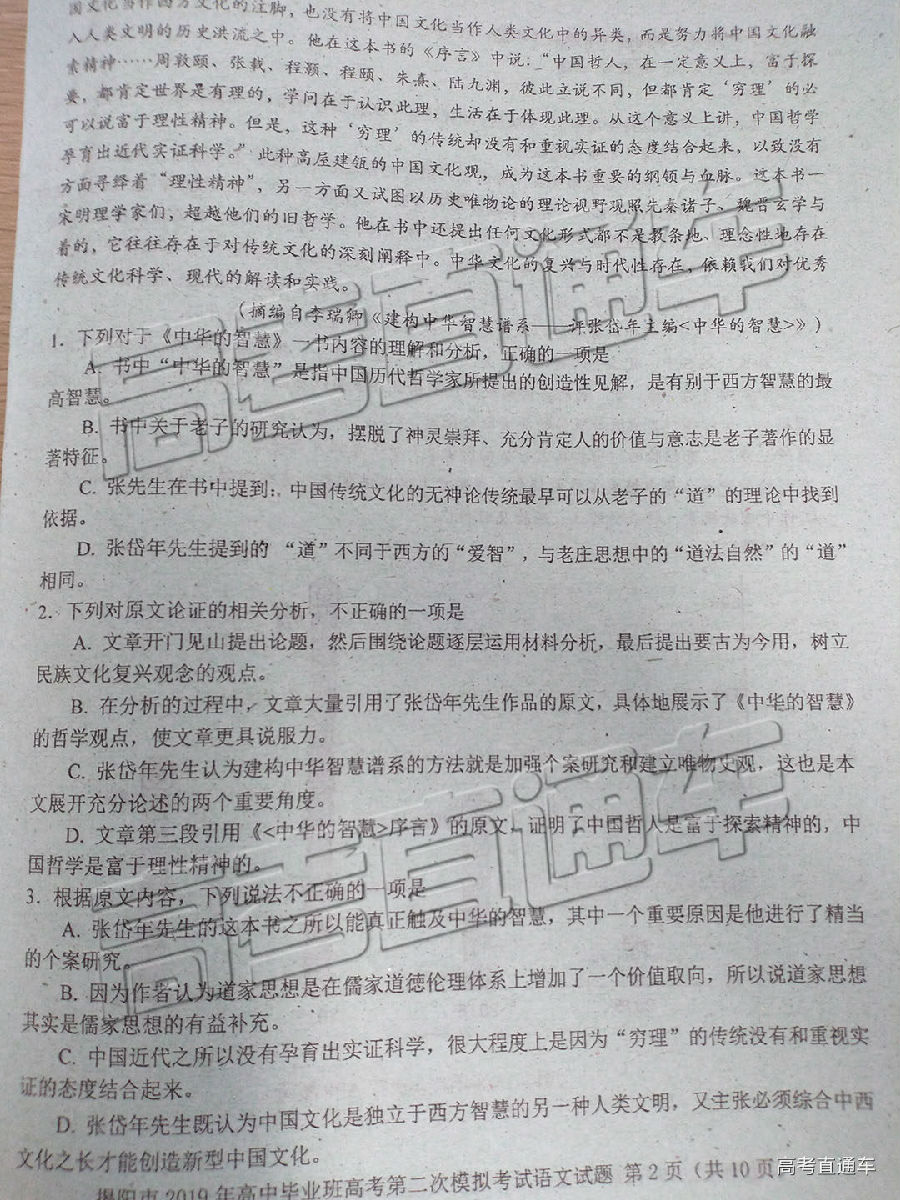 国文化当作西方文化的注脚，也没有将中国文化当作人类文化中的异类，而是努力将中国文化融
入人类文明的历史洪流之中。他在这本书的《序言》中说：“中国哲人，在一定意义上，富于探
索精神……周敦颐、张载、程颢、程颐、朱熹、陆九渊，彼此立说不同，但都肯定‘穷理’的必
要，都肯定世界是有理的，学问在于认识此理，生活在于体现此理。从这个意义上讲，中国哲学
可以说富于理性精神。但是，这种‘穷理’的传统却没有和重视实证的态度结合起来，以致没有
孕育出近代实证科学。”此种高屋建瓴的中国文化观，成为这本书重要的纲领与血脉。这本书一
方面寻绎着“理性精神”，另一方面又试图以历史唯物论的理论视野观照先秦诸子、魏晋玄学与
宋明理学家们，超越他们的旧哲学。他在书中还提出任何文化形式都不是教条地、理念性地存在
着的，它往往存在于对传统文化的深刻阐释中。中华文化的复兴与时代性存在，依赖我们对优秀
传统文化科学、现代的解读和实践。
（摘编自李瑞卿《建构中华智慧谱系——评张岱年主编<中华的智慧>》）
1. 下列对于《中华的智慧》一书内容的理解和分析，正确的一项是
A. 书中“中华的智慧”是指中国历代哲学家所提出的创造性见解，是有别于西方智慧的最
高智慧。
B. 书中关于老子的研究认为，摆脱了神灵崇拜、充分肯定人的价值与意志是老子著作的显
著特征。
C. 张先生在书中提到：中国传统文化的无神论传统最早可以从老子的“道”的理论中找到
依据。
D. 张岱年先生提到的 “道”不同于西方的“爱智”，与老庄思想中的“道法自然”的“道”
相同。
2. 下列对原文论证的相关分析，不正确的一项是
A. 文章开门见山提出论题，然后围绕论题逐层运用材料分析，最后提出要古为今用，树立
民族文化复兴观念的观点。
B. 在分析的过程中，文章大量引用了张岱年先生作品的原文，具体地展示了《中华的智慧》
的哲学观点，使文章更具说服力。
C. 张岱年先生认为建构中华智慧谱系的方法就是加强个案研究和建立唯物史观，这也是本
文展开充分论述的两个重要角度。
D. 文章第三段引用《<中华的智慧>序言》的原文，证明了中国哲人是富于探索精神的，中
国哲学是富于理性精神的。
3. 根据原文内容，下列说法不正确的一项是
A. 张岱年先生的这本书之所以能真正触及中华的智慧，其中一个重要原因是他进行了精当
的个案研究。
B. 因为作者认为道家思想是在儒家道德伦理体系上增加了一个价值取向，所以说道家思想
其实是儒家思想的有益补充。
C. 中国近代之所以没有孕育出实证科学，很大程度上是因为“穷理”的传统没有和重视实
证的态度结合起来。
D. 张岱年先生既认为中国文化是独立于西方智慧的另一种人类文明，又主张必须综合中西
文化之长才能创造新型中国文化。
揭阳市 2019 年高中毕业班高考第二次模拟考试语文试题 第 2 页（共 10 页
高考直通车
高考直通车
高考直通车